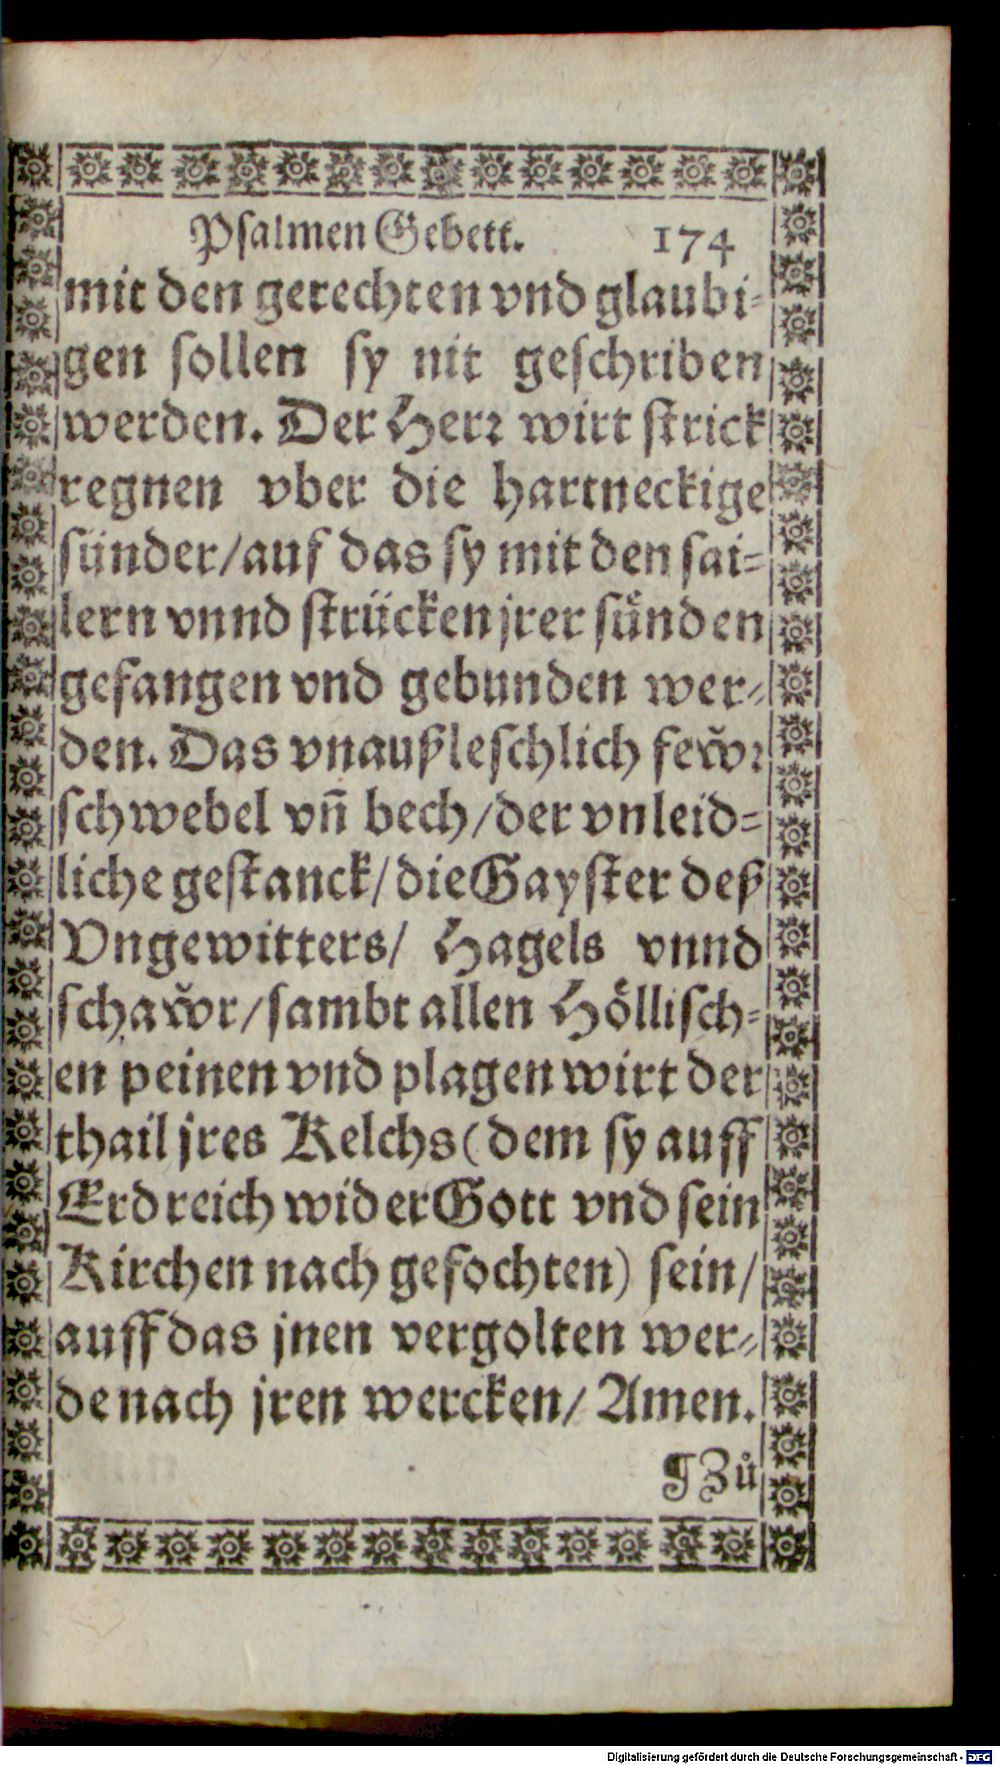 Psalmen Gebett. 174
mit den gerechten vnd glaubi-
gen sollen sy nit geschriben
werden. Der Herr wirt strick
regnen vber die hartneckige
sünder/auf das sy mit den sai-
lern vnnd strücken jrer sünden
gefangen vnd gebunden wer-
den. Das vnaußleschlich fewr
schwebel vñ bech/der vnleid-
liche gestanck/die Gayster deß
Vngewitters/ Hagels vnnd
schawr/sambt allen Höllisch-
en peinen vnd plagen wirt der
thail jres Kelchs (dem sy auff
Erdreich wider Gott vnd sein
Kirchen nach gefochten) sein/
auff das jnen vergolten wer-
de nach jren wercken/ Amen.
¶ Zů
Digitalisierung gefördert durch die Deutsche Forschungsgemeinschaft - DFG